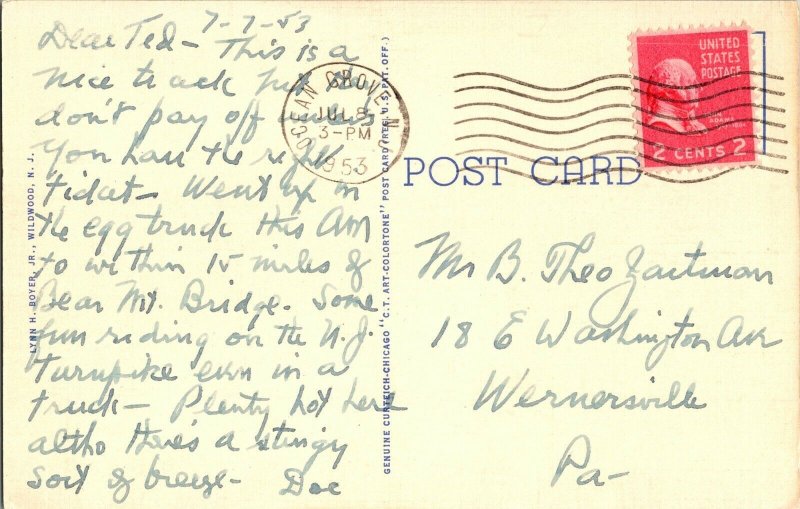 7-7-53
Dear Ted - This is a
nice track but they
don't pay off unless
you have the right
ticket - Went up in
the egg truck this AM
to within 15 miles of
Bear Mt. Bridge. Some
fun riding on the N.J.
Turnpike even in a
truck - Plenty hot here
altho there's a stingy
sort of breeze - Doc
LYNN H. BOYER, JR., WILDWOOD, N. J.
GENUINE CURTEICH-CHICAGO "C.T. ART-COLORTONE" POST CARD (REG. U.S. PAT. OFF.)
OCEAN GROVE N
JUL 8
3-PM
1953
UNITED
STATES
POSTAGE
JOHN
ADAMS
2 CENTS 2
POST CARD
Mr B. Theo Zartman
18 E Washington Ave
Wernersville
Pa-